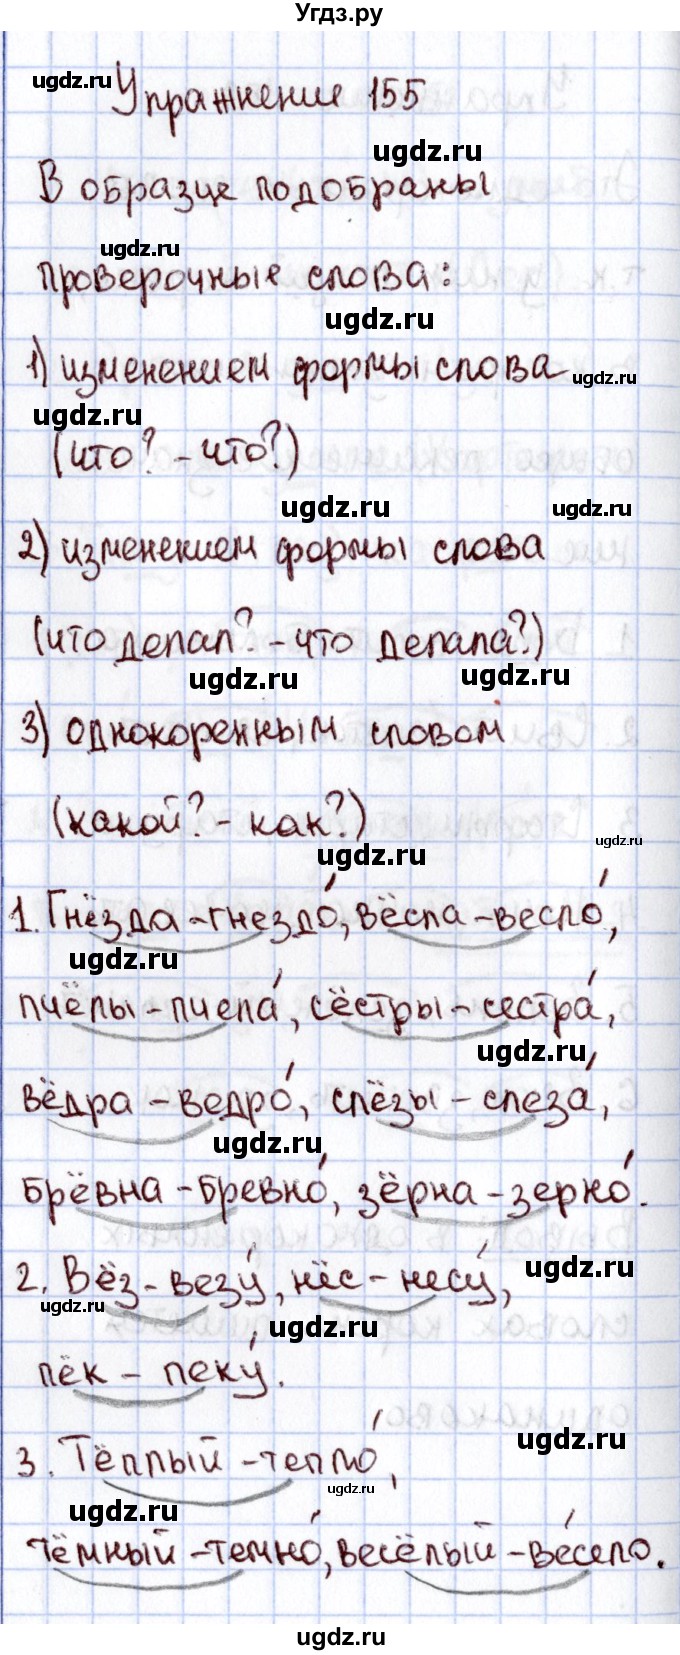 Угдз.ру
Упражнение 155
В образце подобраны
проверочные слова:
1) изменением формы слова
(что? - что?)
2) изменением формы слова
(что делал? - что делала?)
3) однокоренным словом
(какой? - как?)
1. Гнёзда - гнездо́, вёсла - весло́,
пчёлы - пчела́, сёстры - сестра́,
вёдра - ведро́, слёзы - слеза́,
брёвна - бревно́, зёрна - зерно́.
2. Вёз - везу́, нёс - несу́,
пёк - пеку́.
3. Тёплый - тепло́,
тёмный - темно́, весёлый - ве́село.
ugdz.ru